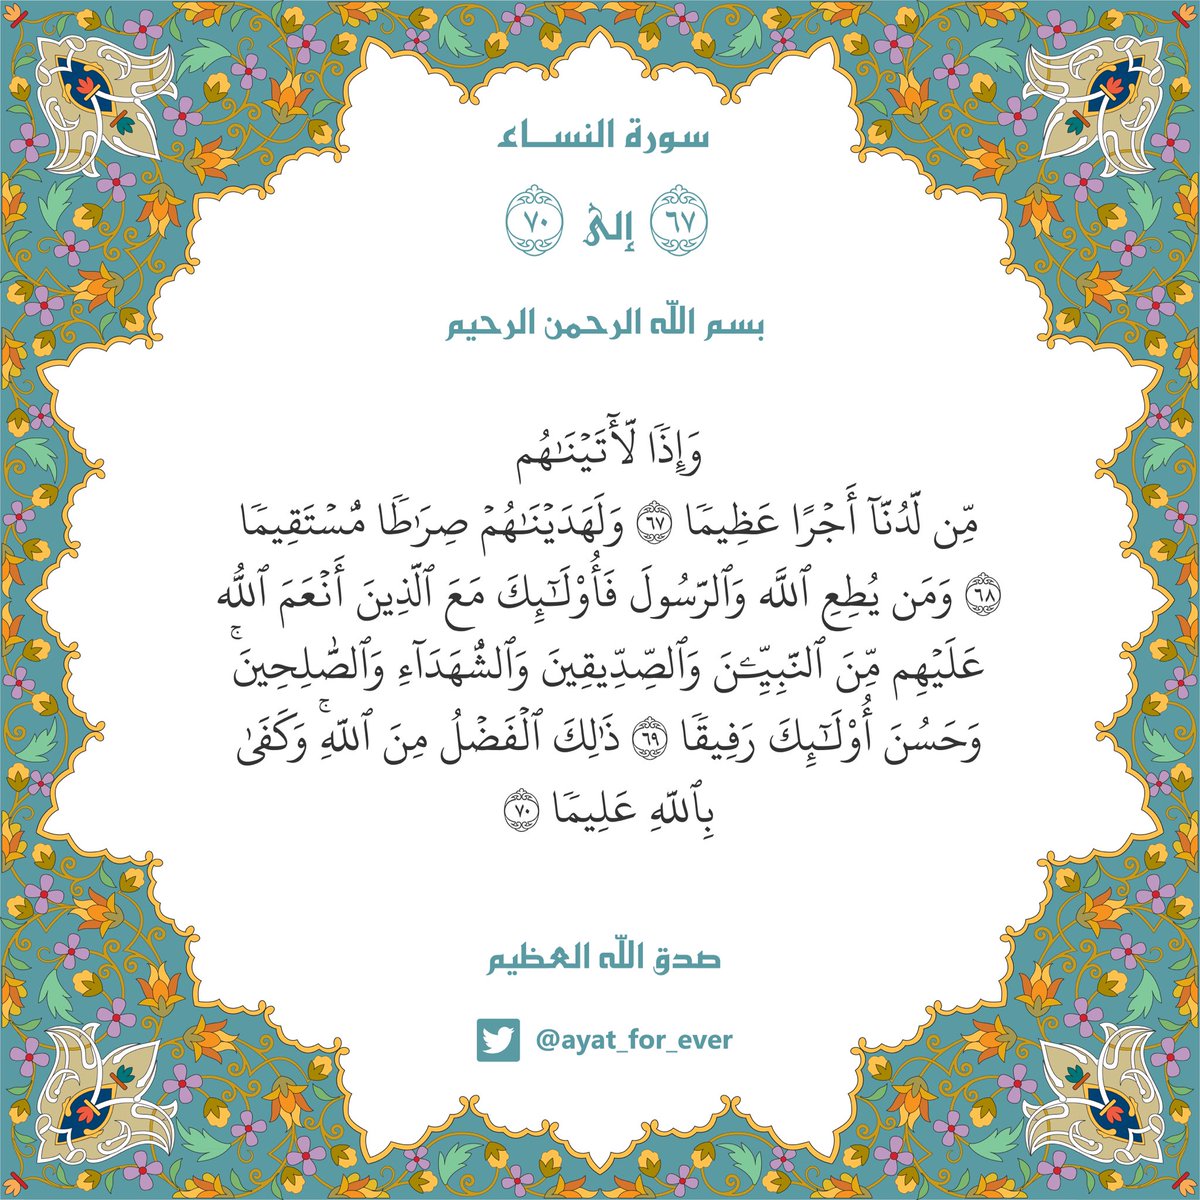 سورة النساء
٦٧ إلى ٧٠
بسم الله الرحمن الرحيم
وَإِذٗا لَّأٓتَيۡنَٰهُم
مِّن لَّدُنَّآ أَجۡرًا عَظِيمٗا ٦٧ وَلَهَدَيۡنَٰهُمۡ صِرَٰطٗا مُّسۡتَقِيمٗا
٦٨ وَمَن يُطِعِ ٱللَّهَ وَٱلرَّسُولَ فَأُوْلَٰٓئِكَ مَعَ ٱلَّذِينَ أَنۡعَمَ ٱللَّهُ
عَلَيۡهِم مِّنَ ٱلنَّبِيِّـۧنَ وَٱلصِّدِّيقِينَ وَٱلشُّهَدَآءِ وَٱلصَّٰلِحِينَۚ
وَحَسُنَ أُوْلَٰٓئِكَ رَفِيقٗا ٦٩ ذَٰلِكَ ٱلۡفَضۡلُ مِنَ ٱللَّهِۚ وَكَفَىٰ
بِٱللَّهِ عَلِيمٗا ٧٠
صدق الله العظيم
@ayat_for_ever